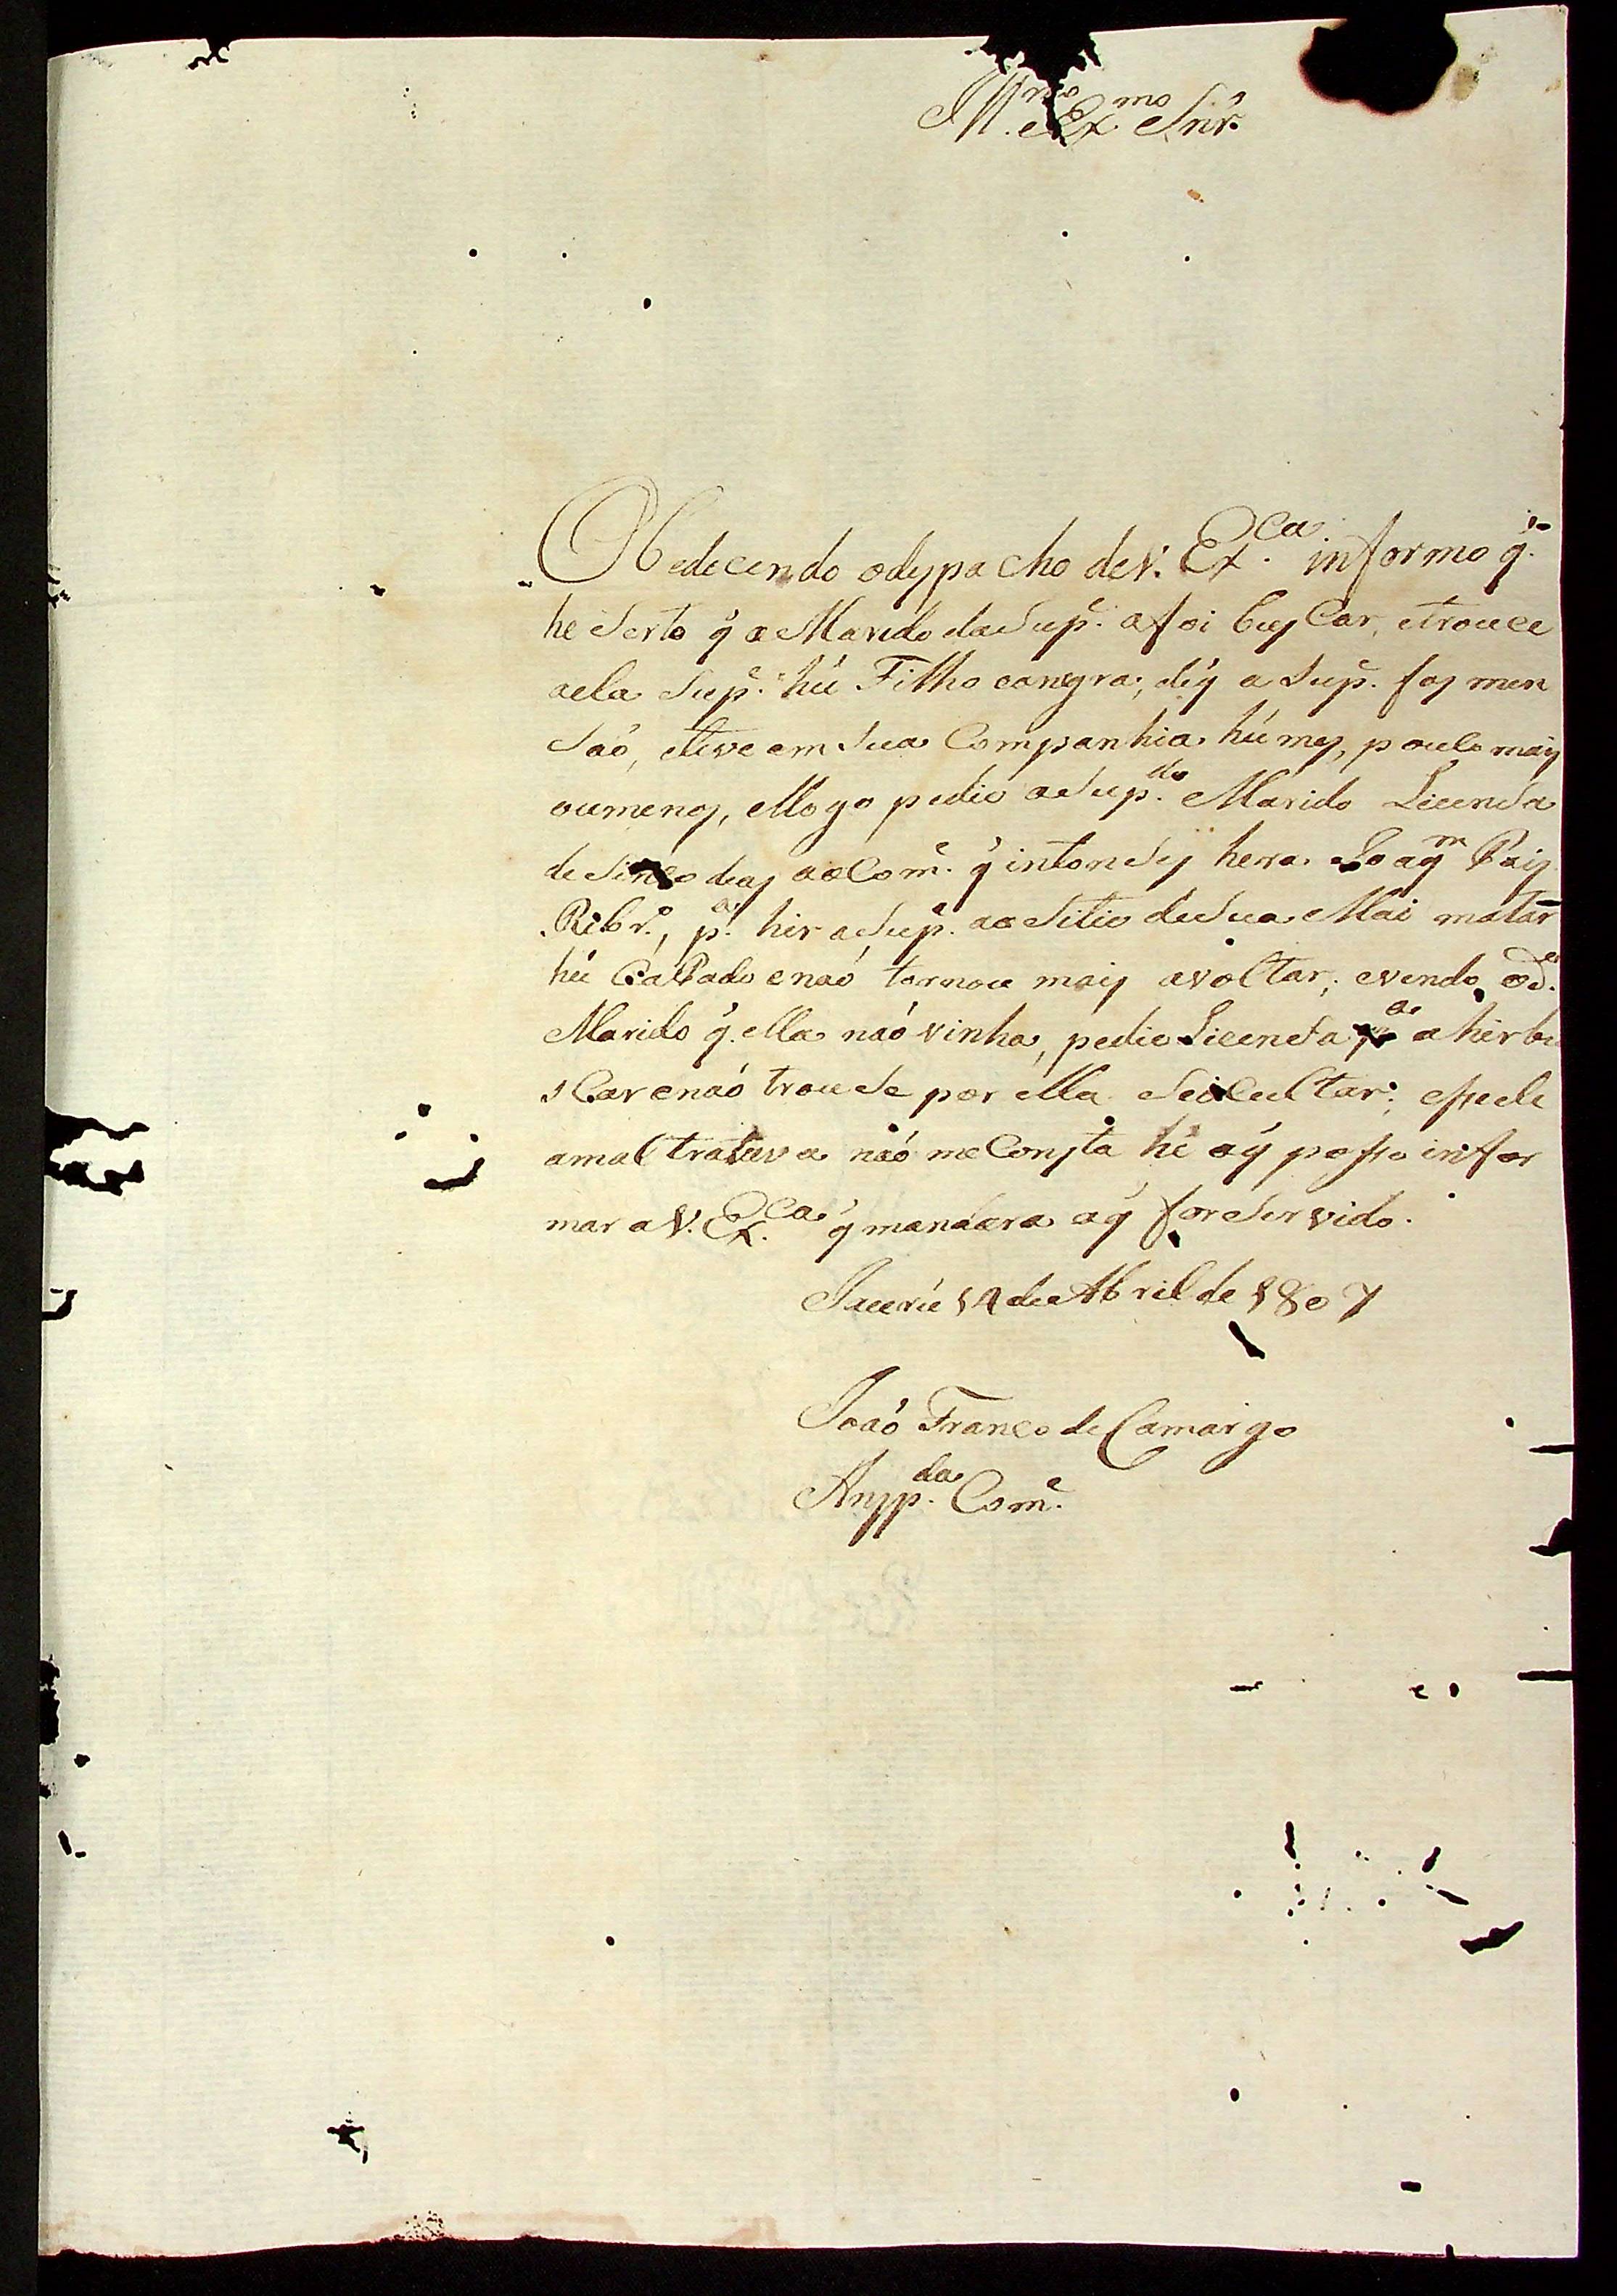 Ill.mo e Ex.mo Snr.
Obedecendo odespacho deV. Ex.ca informo q̃.
he Serto q̃ o Marido da Sup.e afoi busCar, etrouce
aela Sup.e hú Filho eanegra; deq̃ a Sup.e fas men
Saó, eteve em Sua Companhia húmes, pouco mais
oumenos, ellogo pedio odSup.do Marido LicenSa
de Sinco dias aoCom.e q̃ intonSes hera Joaq.m Pais
Ribr.o, p.a hir aSup.e ao Sitio deSua Mai matar
hú CaPado enaó tornou mais avoltar; evendo od.o
Marido q̃. ella naó vinha, pedio LicenSa p.a a hir bu
sCar enaó trouSe por ella SeoCultar; eSeele
amaltratava naó meConsta hé oq̃ posso infor
mar aV. Ex.ca q̃ mandara oq̃ forServido.
Jacuriú 14 de Abril de 1807
Joaó Franco de Camargo
Ansp.da Com.e